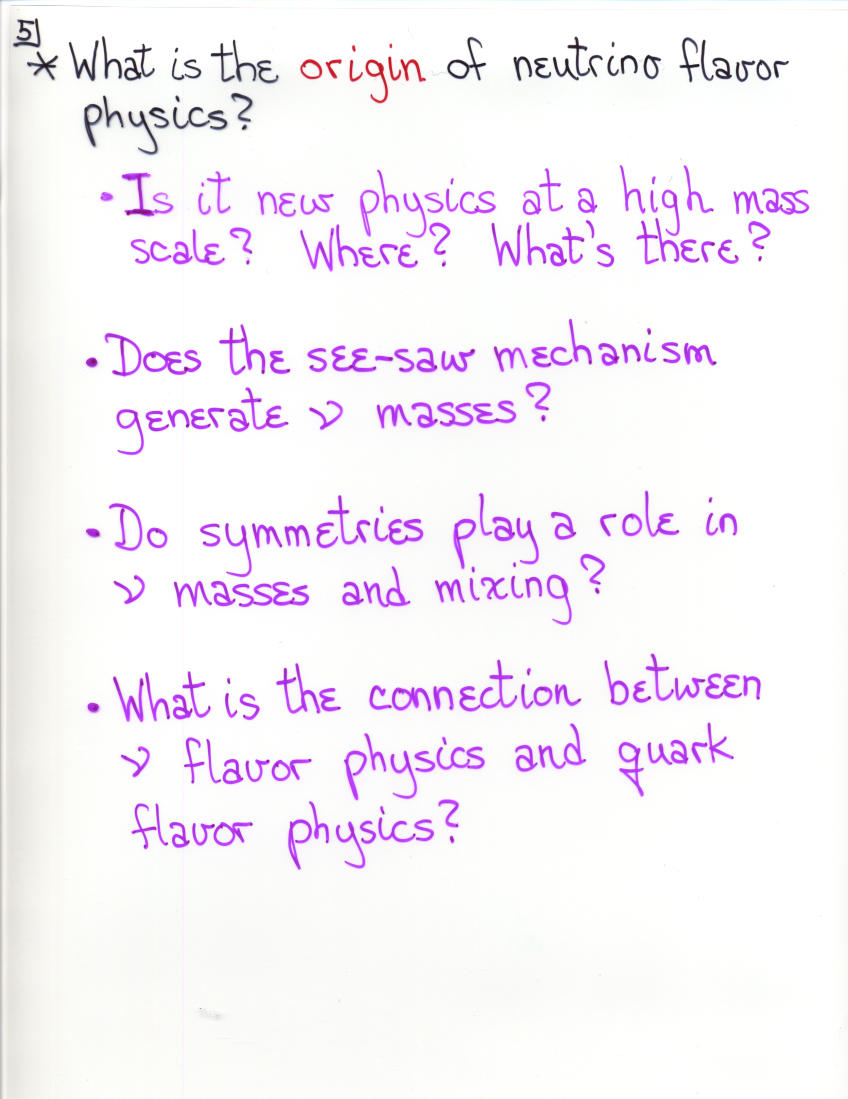 5
* What is the origin of neutrino flavor
physics?
• Is it new physics at a high mass
scale? Where? What's there?
• Does the see-saw mechanism
generate ν masses?
• Do symmetries play a role in
ν masses and mixing?
• What is the connection between
ν flavor physics and quark
flavor physics?